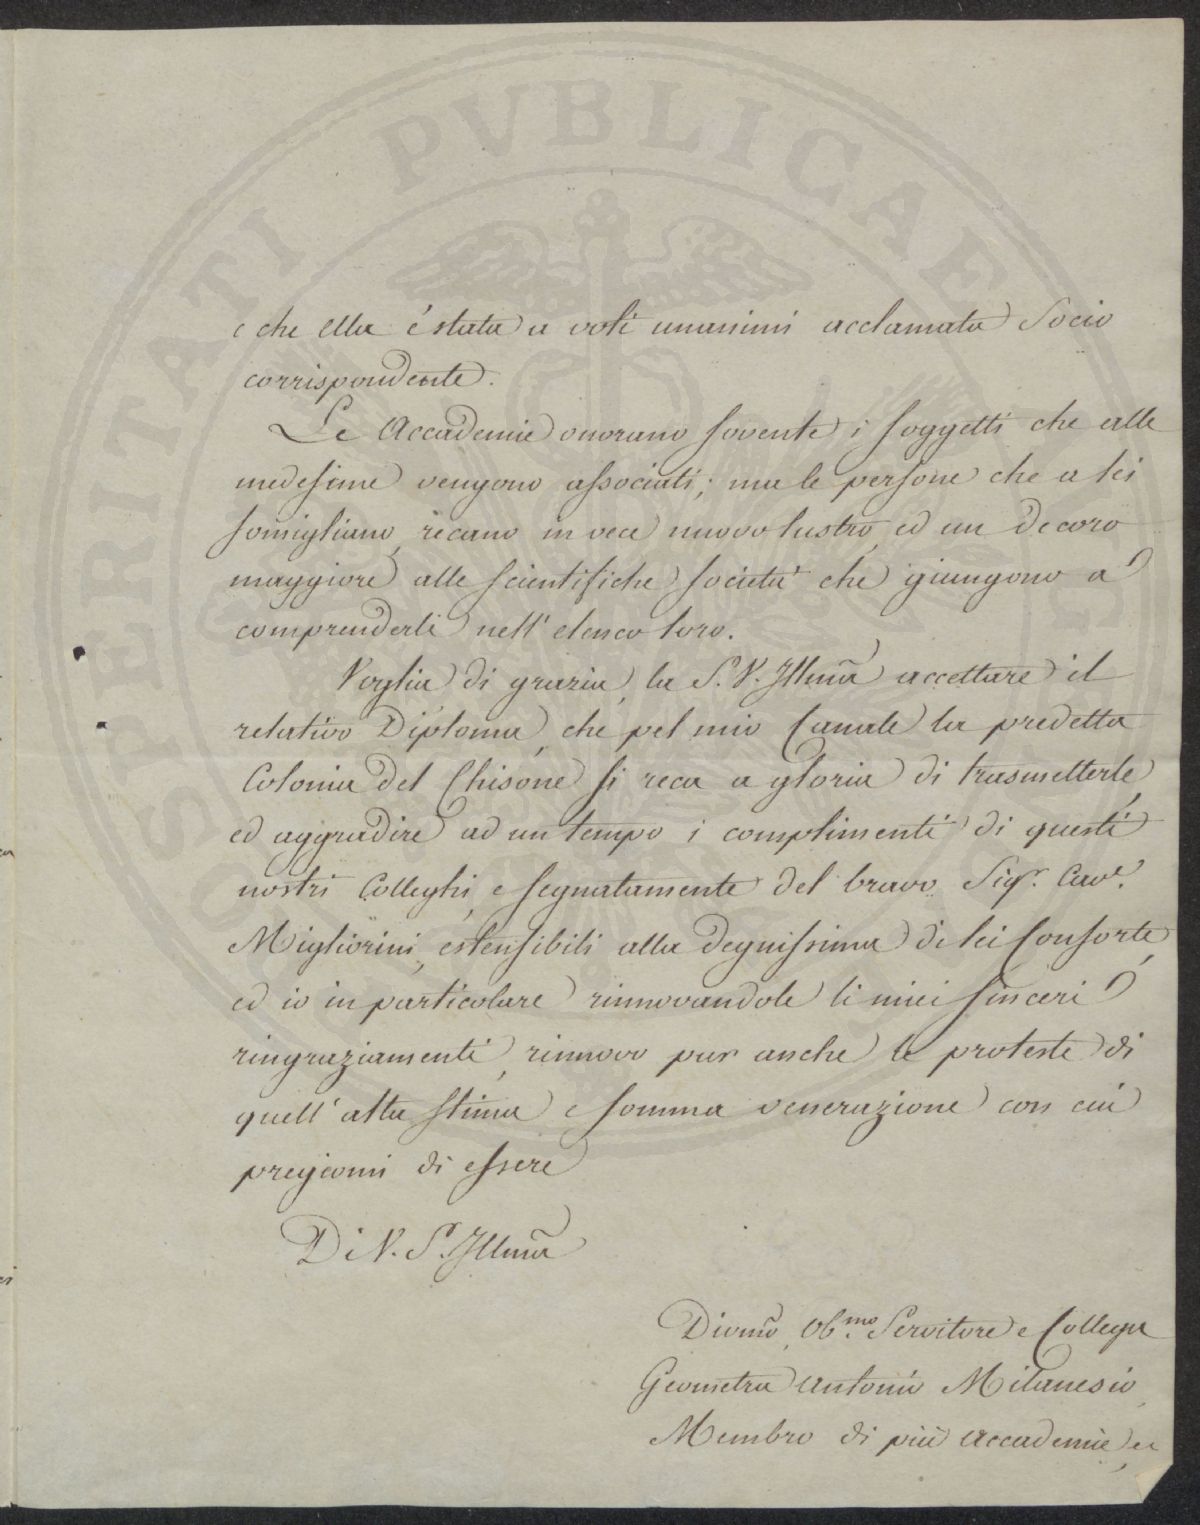 e che Ella è stata a voti unanimi acclamata Socio
corrispondente.
Le Accademie onorano sovente i soggetti che alle
medesime vengono associati; ma le persone che a lei
somigliano, recano in vece nuovo lustro, ed un decoro
maggiore alle scientifiche società che giungono a
comprenderli nell'elenco loro.
Voglia di grazia, la S. V. Illma accettare il
relativo Diploma, che pel mio Canale la predetta
Colonia del Chisone si reca a gloria di trasmetterle,
ed aggradire ad un tempo i complimenti di questi
nostri Colleghi, e segnatamente del bravo Sigr. Cave.
Migliorini, estensibili alla degnissima di lei Consorte,
ed io in particolare rinnovandole li miei sinceri
ringraziamenti, rinnovo pur anche le proteste di
quell'alta stima e somma venerazione con cui
pregiomi di essere
Di V. S. Illma
Divmo, Obmo. Servitore e Collega
Geometra Antonio Milanesio,
Membro di più Accademie,
PVBLICAE